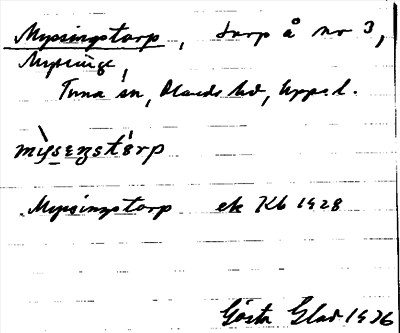 Myssingstorp, torp å nr 3,
Myssinge,
Tuna sn, Olands hd, Upps. l.
mìssεŋstórp
Myssingstorp ek Kb 1928
Gösta Glad 1926